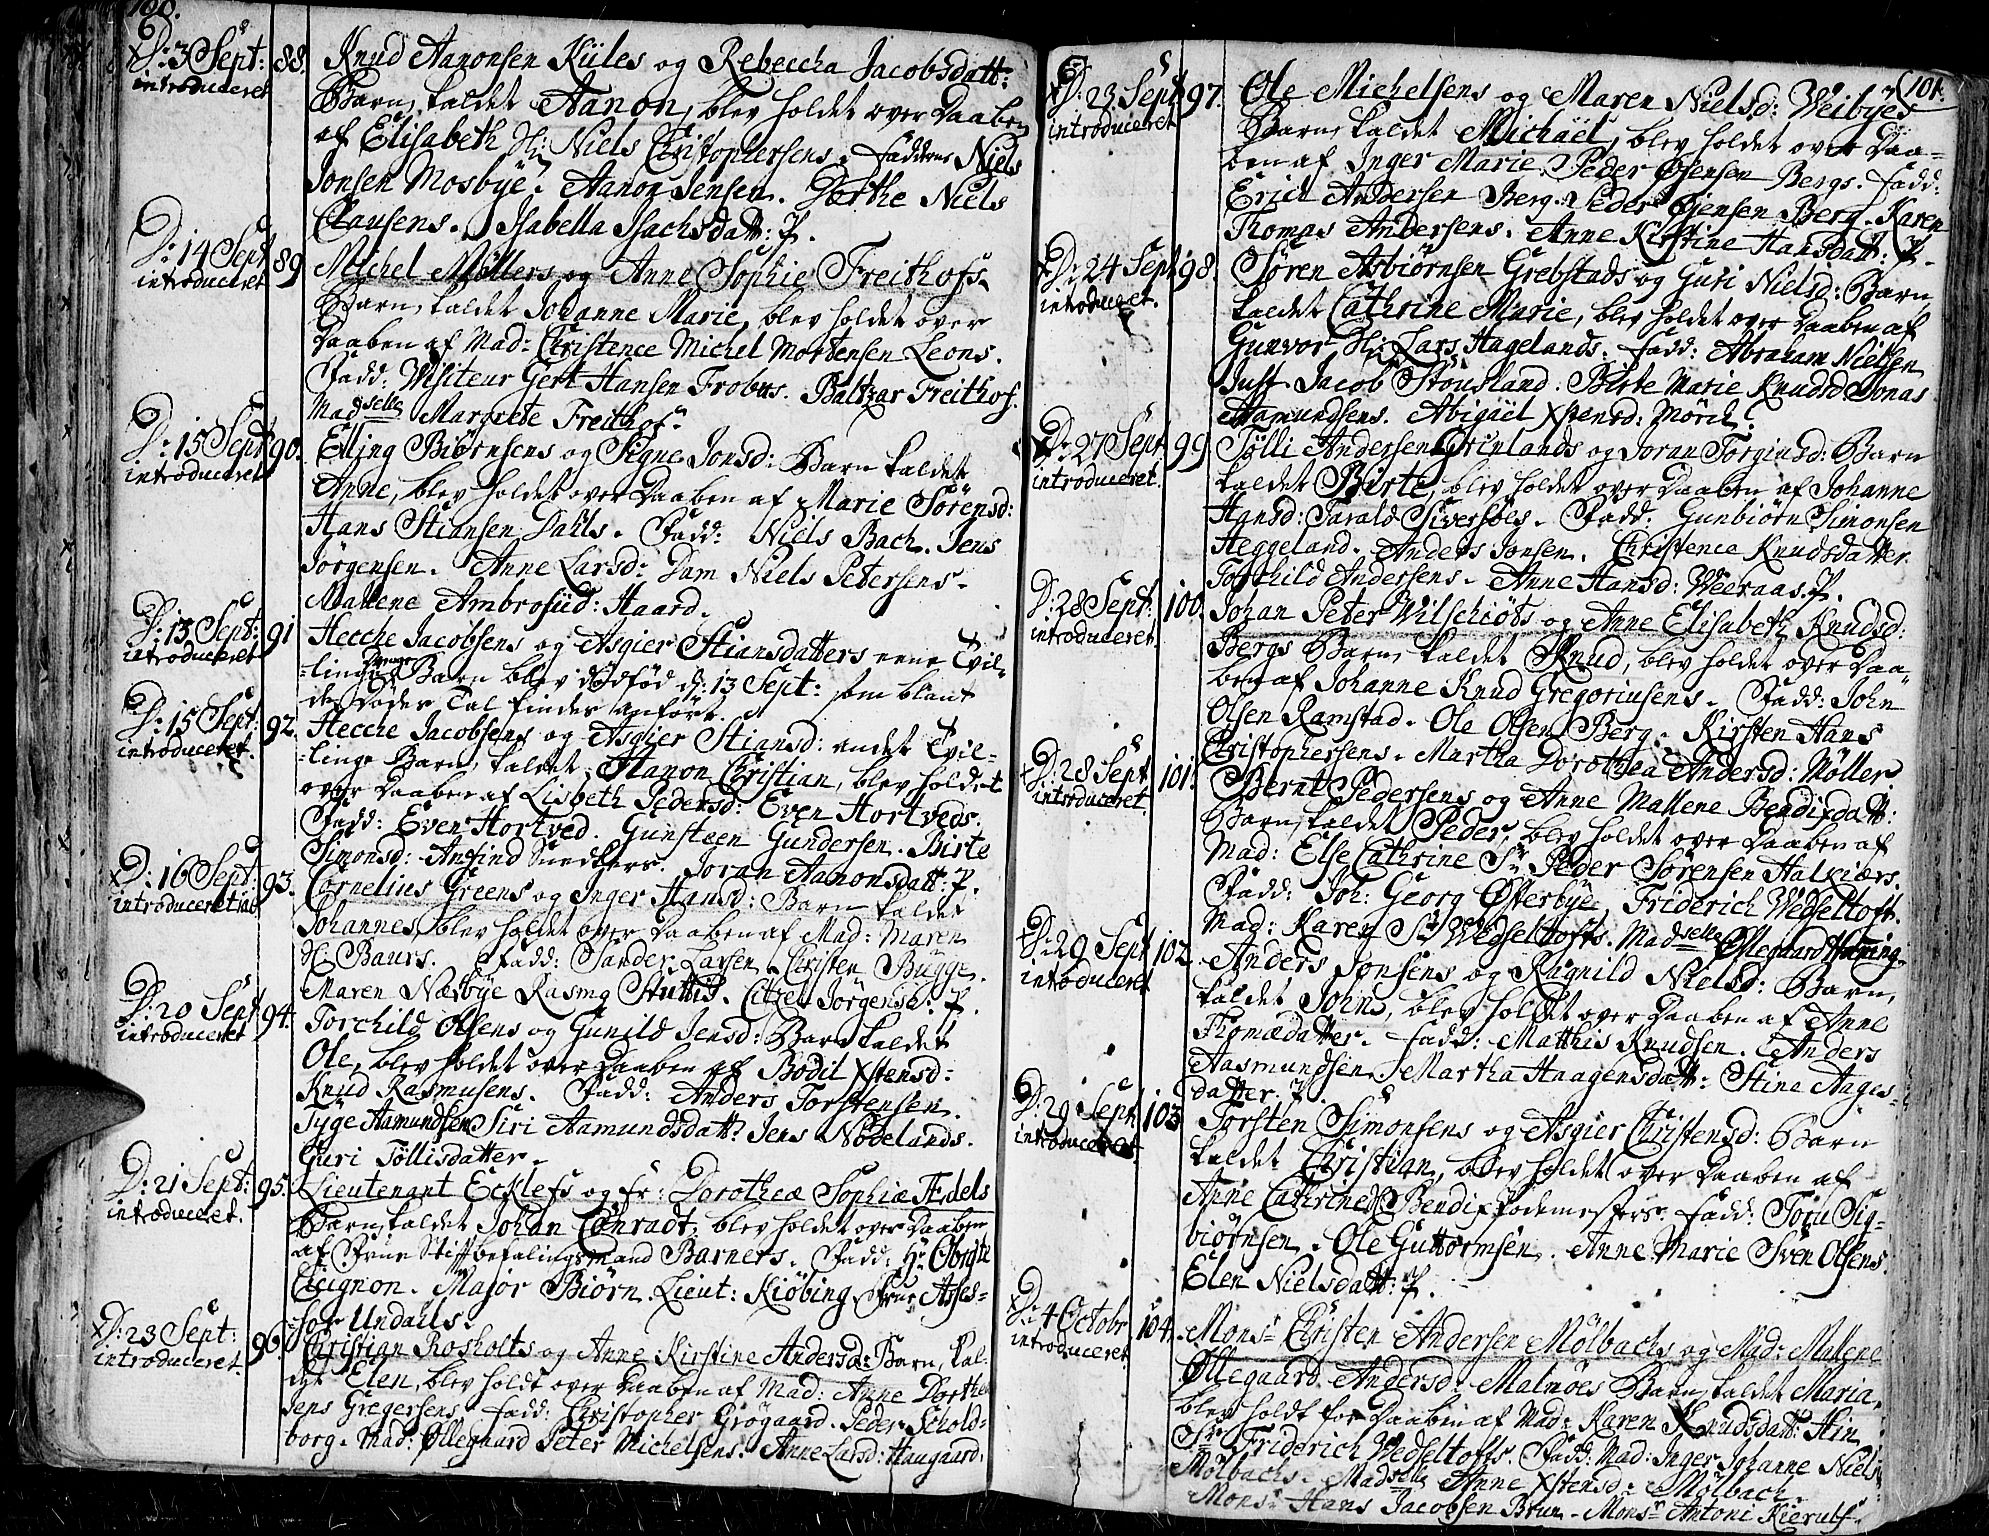 100.
D: 3 Sept: 88. Knud Aanonsen Kiiles og Rebeccha Jacobsdatt:
introduceret Barn, kaldet Aanon, blev holdet over Daaben
af Elisabeth Sl: Niels Christophersens. Faddere Niels
Jonsen Mosbye. Aanon Jensen. Dorthe Niels
Clausens. Isabella Isachsdatt: P.
D: 14 Sept 89 Michel Møllers og Anne Sophie Freithofs
introduceret Barn, kaldet Johanne Marie, blev holdet over
Daaben af Mad: Christence Michel Mortensen Leons.
Fadd: Visiteur Gert Hansen Frobus. Baltzar Freithof.
Madselle Margrete Freithof.
D: 15 Sept 90. Elling Biörnsens og Signe Jonsd: Barn kaldet
introduceret Anne, blev holdet over Daaben af Marie Sörensd:
Hans Stiansen Dahls. Fadd: Niels Bach. Jens
Jörgensen. Anne Larsd: Dam Niels Petersens.
Mallene Ambrosiid: Haard.
D: 13 Sept: 91 Hecche Jacobsens og Asgier Stiansdatters eene Tvil-
introduceret -linge Drenge Barn blev dödföd d: 13 Sept: som blant
de Dödes Tal findes anfört.
D: 15 Sept: 92. Hecche Jacobsens og Asgier Stiansd: andet Tvil-
introduceret. -linge Barn, kaldet Aanon Christian, blev holdet
over Daaben af Lisbeth Pedersd: Even Hortveds.
Fadd: Even Hortved. Gunsteen Gundersen. Birte
Simonsd: Anfind Snedkers. Joran Aanonsdatt: P.
D: 16 Sept: 93. Cornelius Greens og Inger Hansd: Barn kaldet
introduceret Johannes, blev holdet over Daaben af Mad: Maren
Sl: Baurs. Fadd: Sander Larsen. Christen Bugge.
Maren Næsbye Rasm Citzel Jörgensd: P.
D: 20 Sept 94. Torchild Olsens og Gunild Jensd: Barn kaldet
introduceret Ole, blev holdet over Daaben af Bodil Xstensd:
Knud Rasmusens. Fadd: Anders Torstensen.
Tyge Aamundsen. Siri Aamundsdatt: Jens Nodelands.
Guri Töllisdatter.
D: 21 Sept: 95. Lieutenant Ecklefs og Fr: Dorotheæ Sophiæ Hedels
introduceret. Barn, kaldet Johan Conradt, blev holdet over Daaben
af Frue Stiftbefalingsmand Barners. Fadd: Hr Obriste
Major Biörn. Lieut: Kiöbing. Frue Asses-
sor Undahls.
D: 23 Sept: 96. Christian Rosholts og Anne Kirstine Andersd: Barn, kal-
introduceret. det Elen, blev holdt over Daaben af Mad: Anne Dorthe
Jens Gregersens. Fadd: Christopher Grögaard. Peder Schold-
borg. Mad: Øllegaard Peter Michelsens. Anne Larsd: Haugaard.
101.
D: 23 Sept 97. Ole Michelsens og Maren Nielsd: Veibyes
introduceret Barn, kaldet Michaël, blev holdet over Daa-
ben af Inger Marie Peder Øjensen Bergs. Fadd:
Erich Andersen Berg. Peder Øjensen Berg. Karen
Thomas Andersens. Anne Kirstine Hansdatt: P.
D: 24 Sept 98. Sören Asbiörnsen Grebstads og Guri Nielsd: Barn
introducet. kaldet Cathrine Marie, blev holdet over Daaben af
Gunvor Sl: Lars Hagelands. Fadd: Abraham Nielsen
Just Jacob Stousland. Birte Marie Knudsd Jonas
Aamundsens. Abigaël Xstensd: Mörch.
D: 27 Sept. 99 Tölli Andersen Grinlands og Joran Torgiusd: Barn
introduceret. kaldet Birte, blev holdet over Daaben af Johanne
Hansd: Tarald Siversöes. Fadd: Gunbiörn Simonsen
Heggeland. Anders Jonsen. Christence Knudsdatter.
Torchild Andersens. Anne Hansd: Weeraas. P.
D: 28 Sept: 100. Johan Peter Wilschiöts og Anne Elisabeth Knudsd:
introduceret. Bergs Barn, kaldet Knud, blev holdet over Daa-
ben af Johanne Knud Gregoriusens. Fadd: John
Olsen Ramstad. Ole Olsen Berg. Kirsten Hans
Christophersens. Martha Dorothea Andersd: Möller.
D: 28 Sept 101. Bernt Pedersens og Anne Mallene Bendixdatt:
introduceret. Barn, kaldet Peder, blev holdet over Daaben af
Mad: Else Cathrine Sr Peder Sörensen Halkiærs.
Fadd: Joh: Georg Østerbye. Friderich Wedseltoft.
Mad: Karen Sr Wedseltofts. Madselle Øllegaard Henning.
D: 29 Sept 102. Anders Jonsens og Ragnild Nielsd: Barn,
introduceret kaldet John, blev holdet over Daaben af Anne
Thomædatter. Fadd: Matthis Knudsen. Anders
Aasmundsen. Martha Haagensdatt: Stine Aages-
datter. P.
D: 29 Sept 103 Torsten Simonsens og Asgier Christensd: Barn
introduceret. kaldet Christian, blev holdet over Daaben af
Anne Cathrine Bendix Podemesters. Fadd: Töru Sig-
biörnsen. Ole Guttormsen. Anne Marie Sven Olsens.
Elen Nielsdatt: P.
D: 4 Octobr 104. Monsr Christen Andersen Mölbachs og Mad: Mallene
introduceret Øllegaard Andersd: Malmöes Barn, kaldet Maria,
blev holdt for Daaben af Mad: Karen Knudsdatt: Hin
Sr Friderich Wedseltofts. Fadd: Mad: Inger Johanne Niels
Mölbachs. Madselle Anne Xstensd: Mölbach.
Monsr Hans Jacobsen Brun. Monsr Antoni Kierulf.